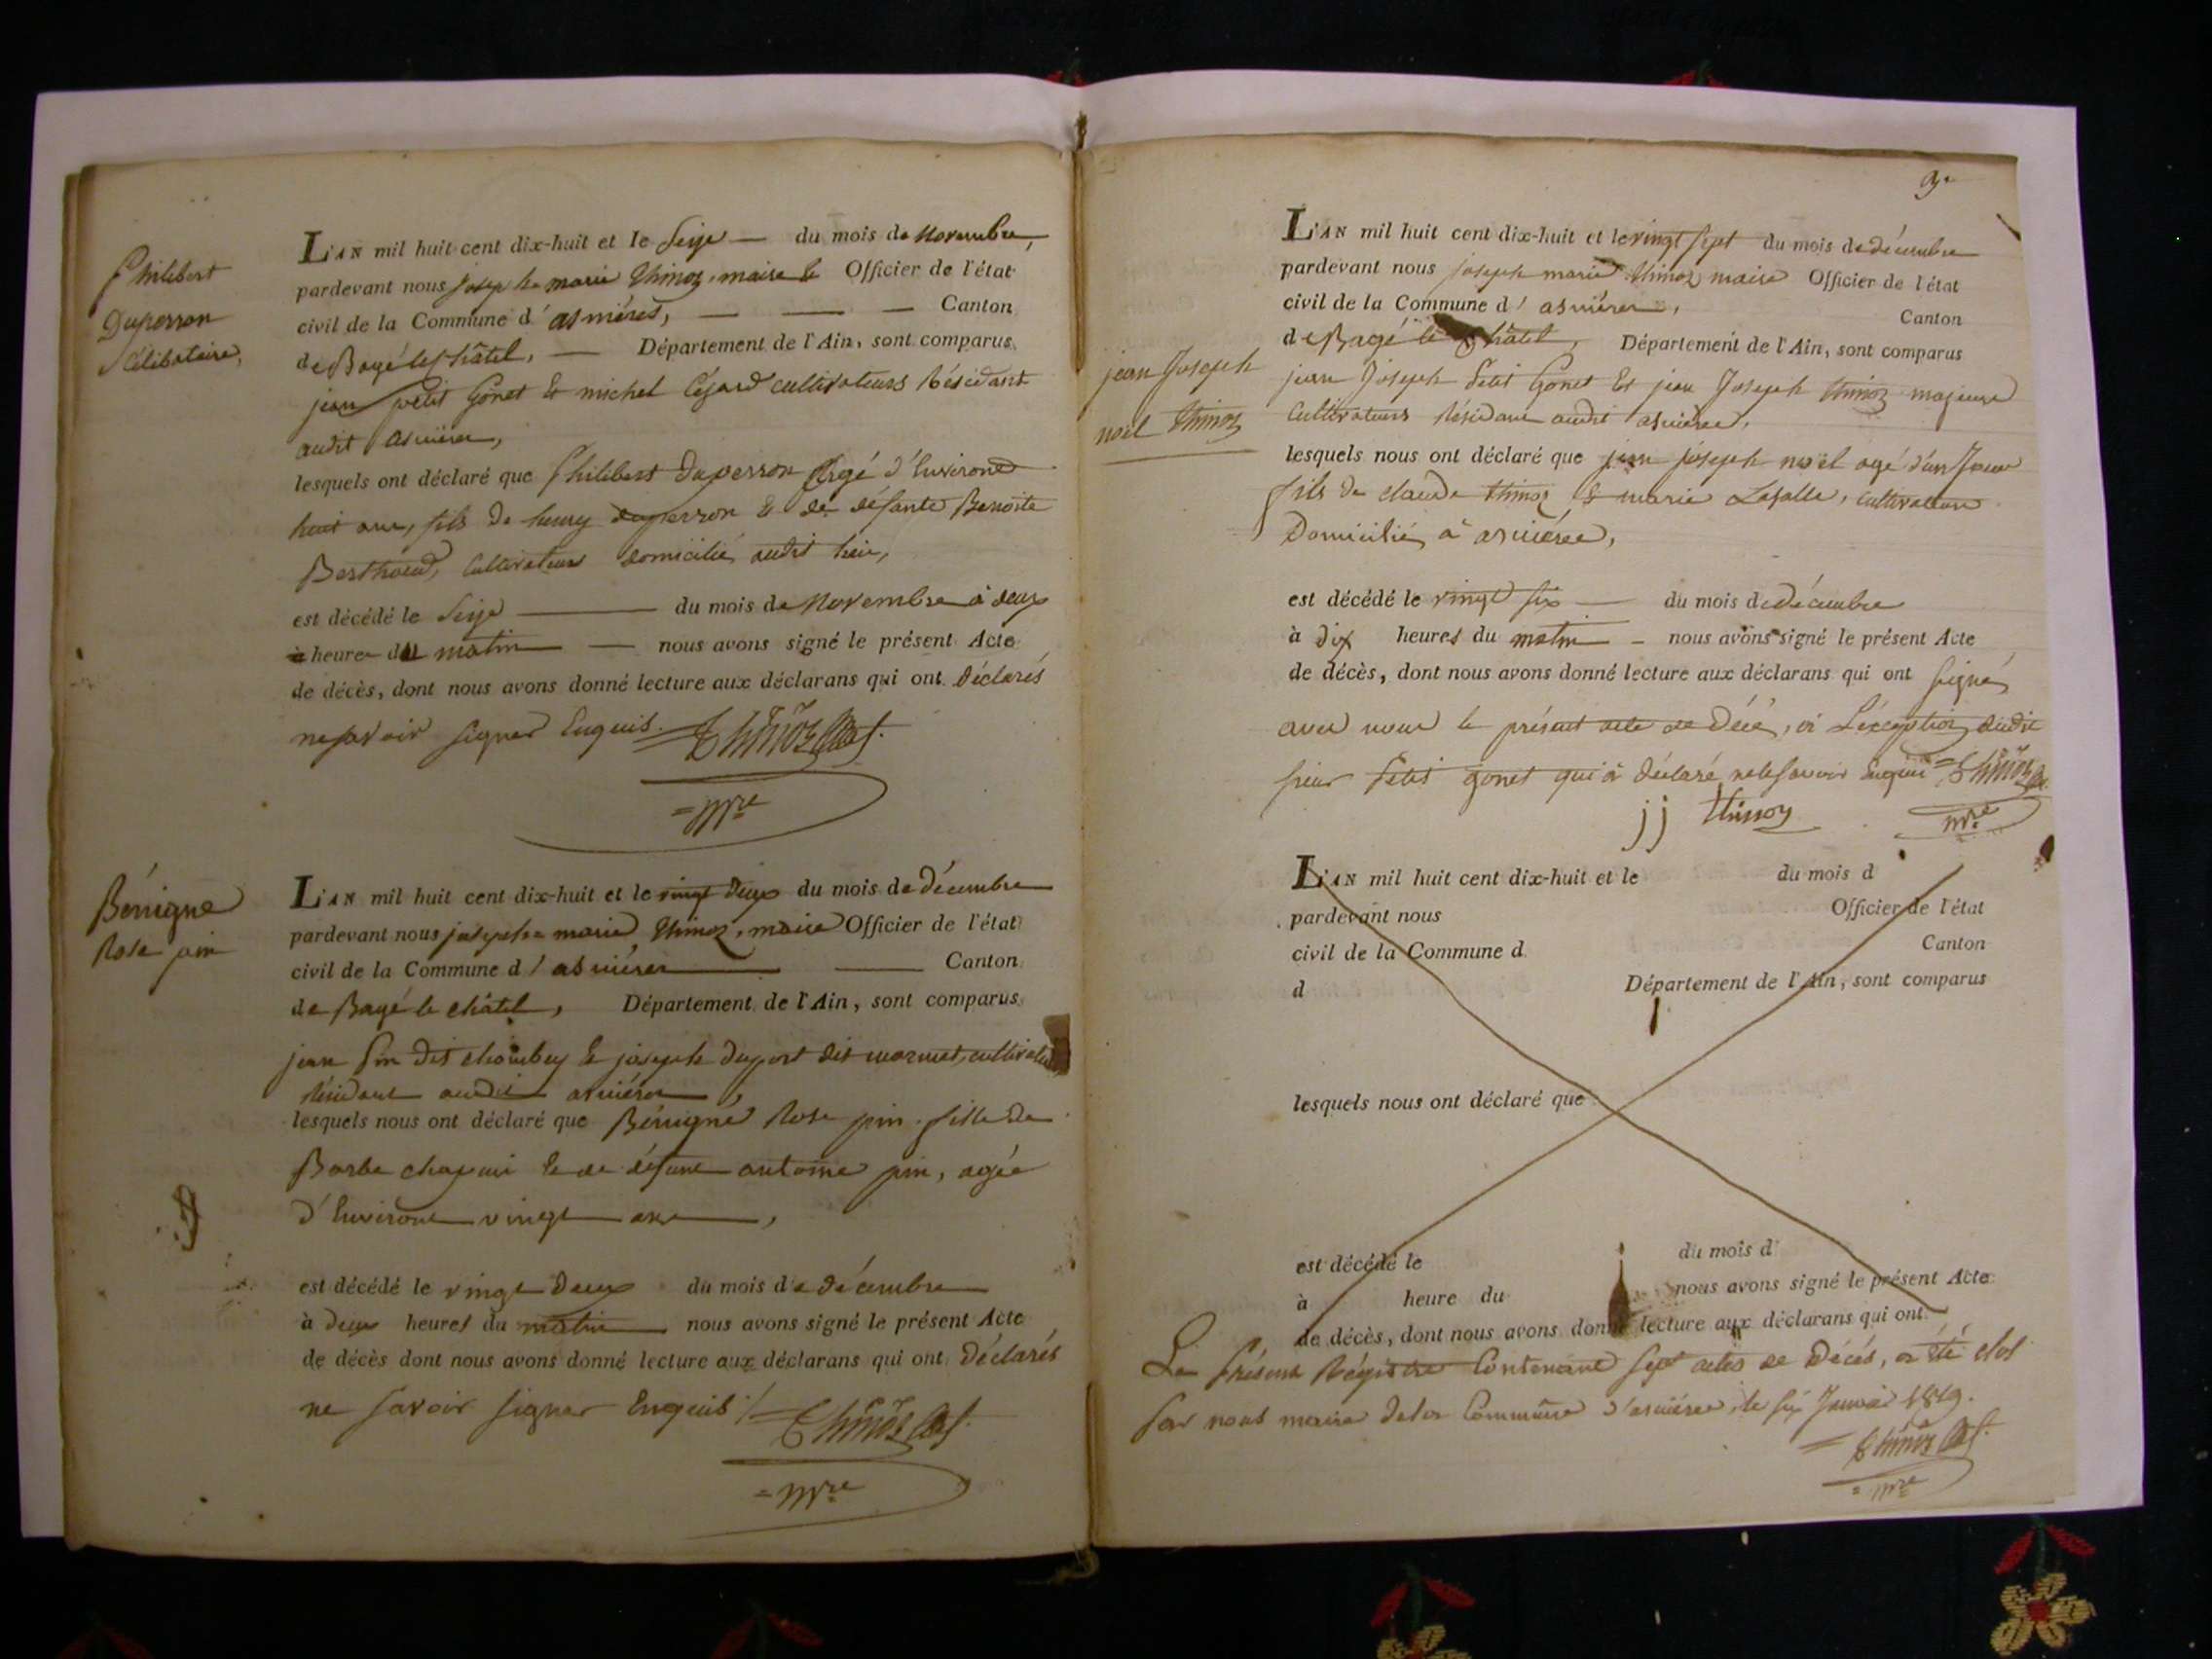 Philibert
Duperron
Célibataire,
L'AN mil huit cent dix-huit et le Seize du mois de Novembre,
pardevant nous Joseph marie Thinoz, maire & Officier de l'état
civil de la Commune d' asmières, Canton
de Bagé le Châtel, Département de l'Ain, sont comparus
jean petit Gonet & michel cultivateurs Résidant
audit asnières,
lesquels ont déclaré que Philibert Duperron Agé d'Environs
huit ans, fils de henry duperron & de défante Benoite
Berthoud, Cultivateurs domicilié audit lieu,
est décédé le Seize du mois de Novembre à deux
à heures du matin nous avons signé le présent Acte
de décès, dont nous avons donné lecture aux déclarans qui ont Déclarés
ne savoir signer Enquis. Thinoz
= Mre
Bénigne
Rose pin
L'AN mil huit cent dix-huit et le vingt deux du mois de Décembre
pardevant nous joseph marie Thinoz, maire Officier de l'état
civil de la Commune d' asnières Canton
de Bagé le châtel, Département de l'Ain, sont comparus
jean pin dit chambuy & joseph duport dit mormet, cultivateurs
Résidant audit asnières,
lesquels nous ont déclaré que Bénigne Rose pin fille de
Barbe chapuis & de défunt antoine pin, agée
d'Environt vingt ans,
est décédé le vingt Deux du mois de décembre
à Deux heures du matin nous avons signé le présent Acte
de décès dont nous avons donné lecture aux déclarans qui ont Déclarés
ne savoir signer Enquis ./. Thinoz
= Mre
9.
jean Joseph
noël Thinoz
L'AN mil huit cent dix-huit et le vingt sept du mois de décembre
pardevant nous joseph marie Thinoz maire Officier de l'état
civil de la Commune d' asnières, Canton
de Bagé le Châtel, Département de l'Ain, sont comparus
jean Joseph Petit Gonet Et jean Joseph Thinoz majeurs
Cultivateurs Résidant audit asnières,
lesquels nous ont déclaré que jean joseph noël agé d'un Jour
fils de claude Thinoz & marie Lasalle, cultivateurs
Domicilié à asnières,
est décédé le vingt six du mois de décembre
à dix heures du matin nous avons signé le présent Acte
de décès, dont nous avons donné lecture aux déclarans qui ont signé
avec nous le présent acte de Décé, à L'exception dudit
sieur Petit gonet qui à déclaré ne le savoir Enquis = Thinoz
jj Thinoz
Mre
L'AN mil huit cent dix-huit et le du mois d
pardevant nous Officier de l'état
civil de la Commune d Canton
d Département de l'Ain, sont comparus
lesquels nous ont déclaré que
est décédé le du mois d
à heure du nous avons signé le présent Acte
de décès, dont nous avons donné lecture aux déclarans qui ont
Le Présent Régistre Contenant Sept actes de Décés, a été clos
Par nous maire de la Commune d'asnières, le six Janvier 1819.
= Thinoz
= Mre